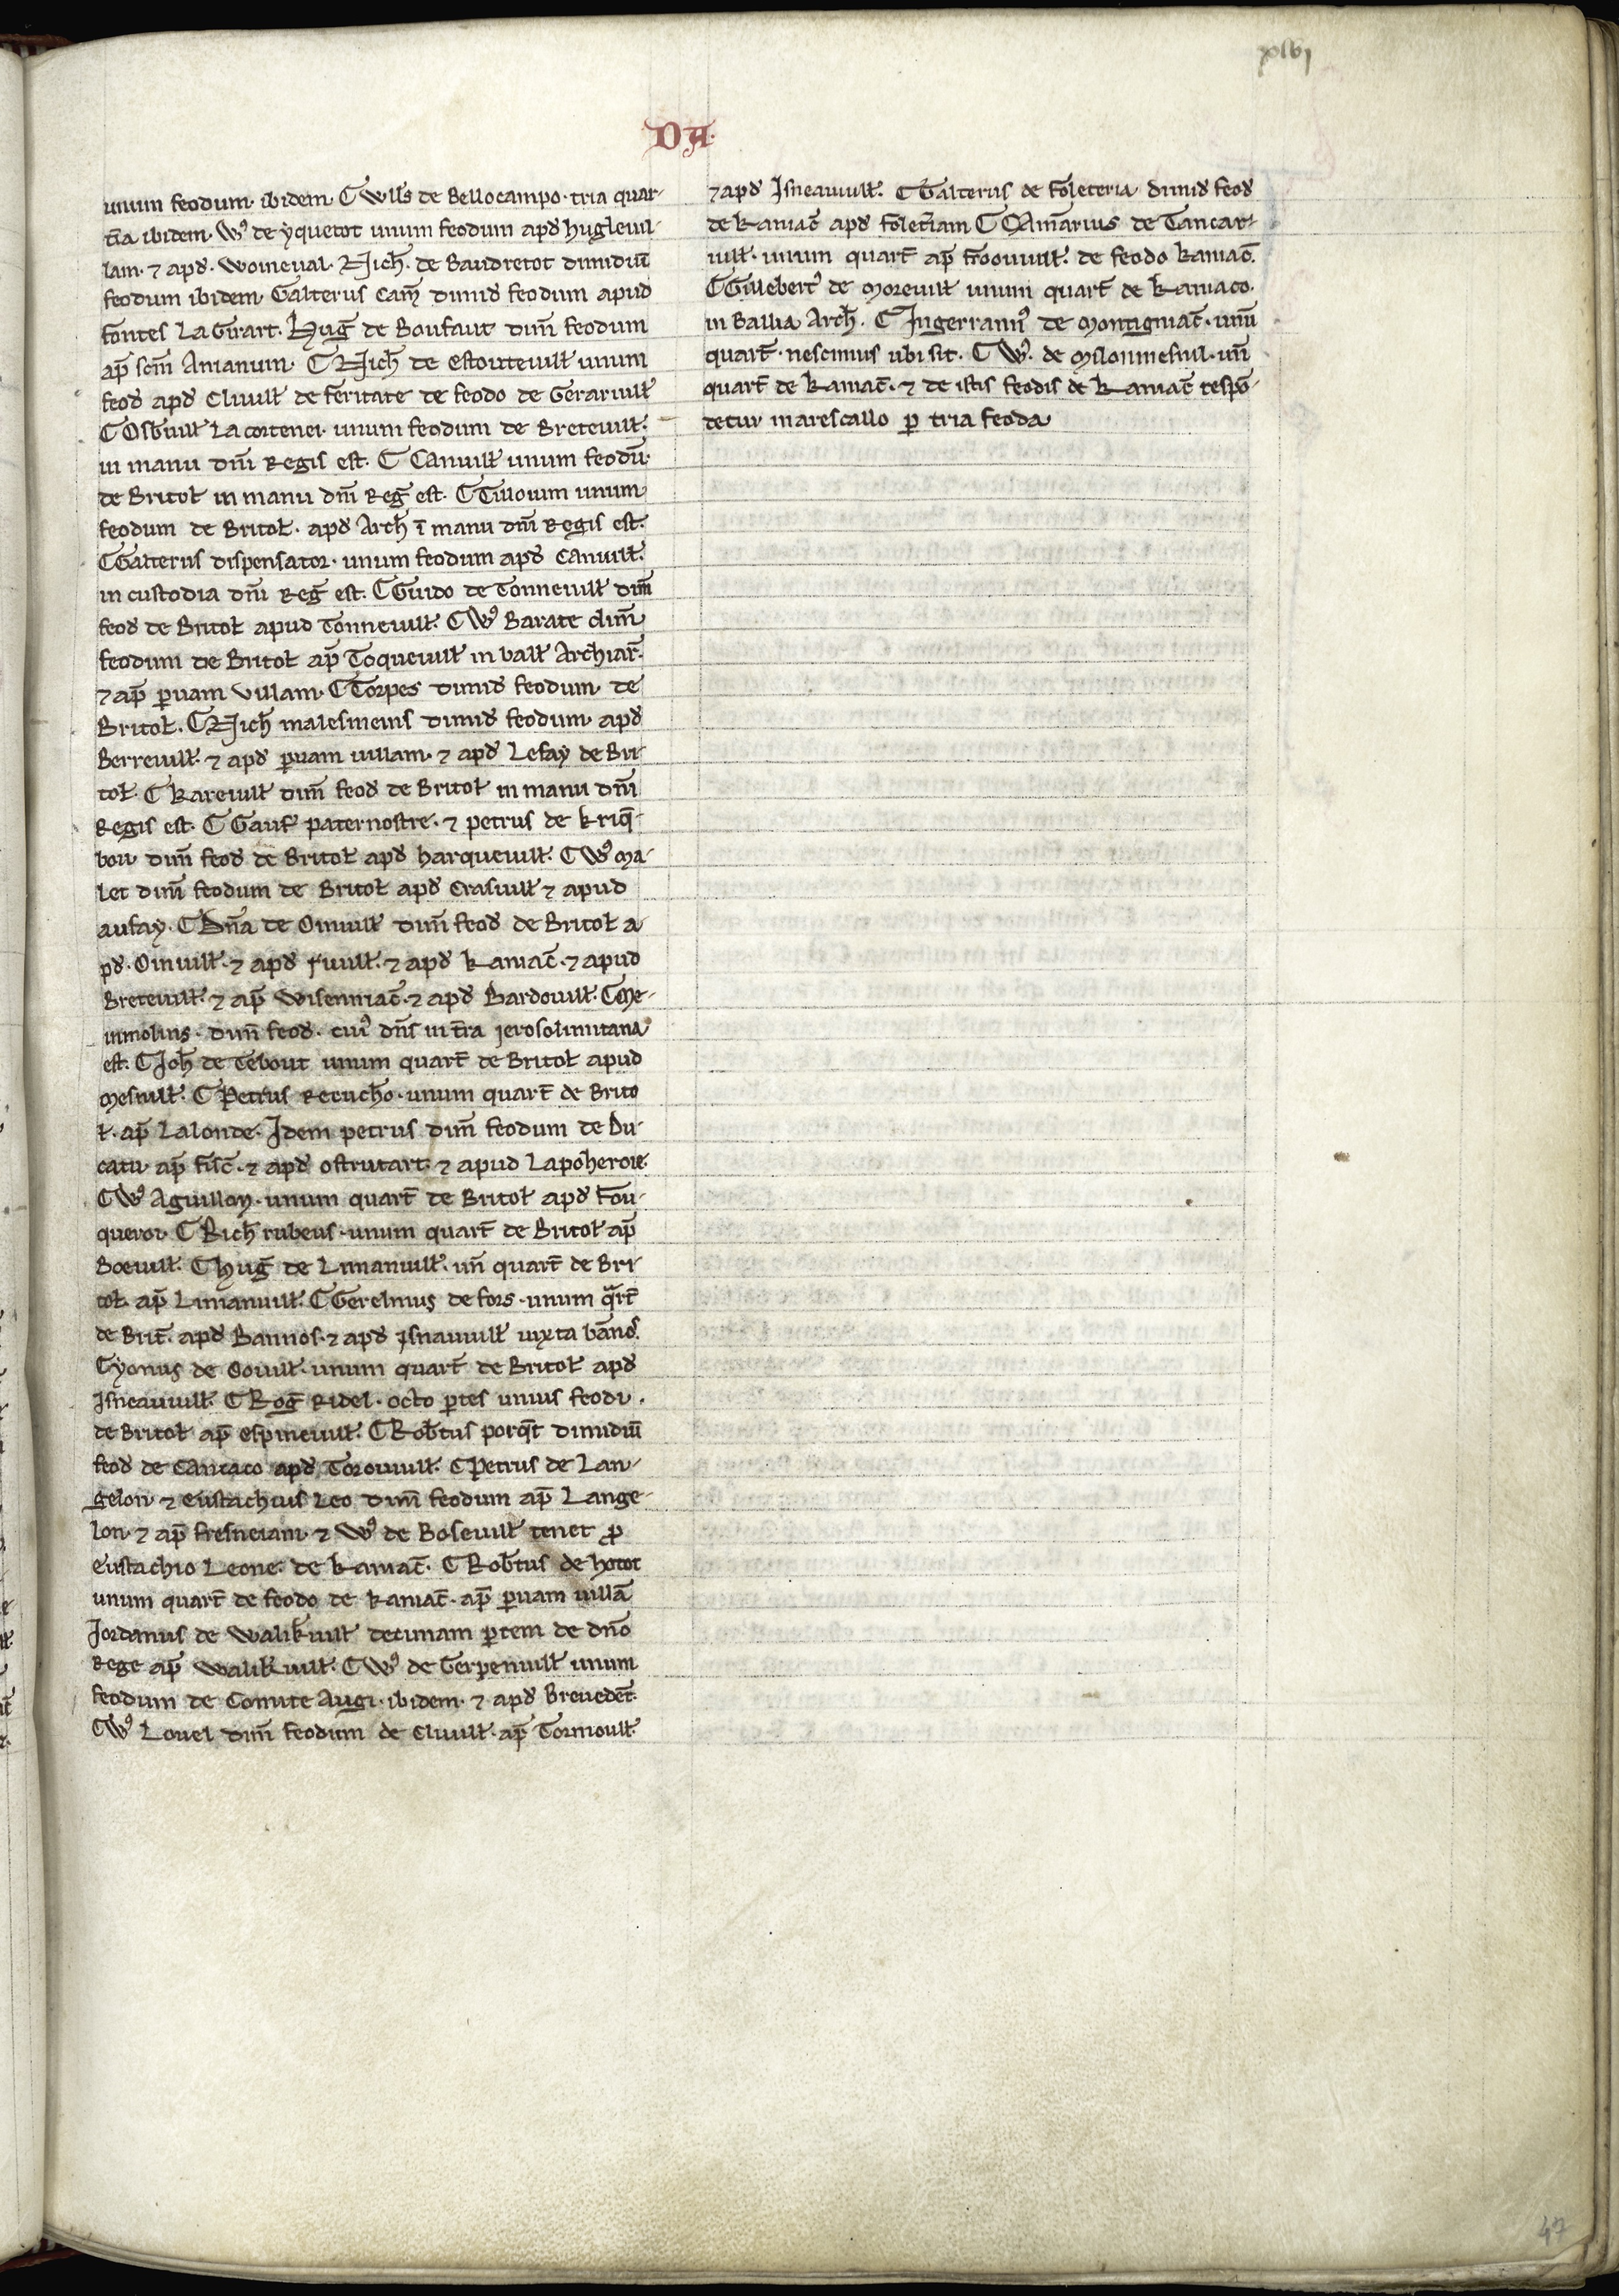 xlvj
DA.
unum feodum. ibidem. ⁋ Wills̄ de Bellocampo. tria quar-
t̄ia ibidem. W⁹ de yquetot unum feodum apd̄ hugleuil-
lam. ⁊ apd̄. Woineual. Rich̄. de Baudretot dimidiū
feodum ibidem. Galterus cam̄ dimid̄ feodum apud
fontes La Girart. Huḡ de Boufaut dim̄ feodum
ap̄ sc̄m Anianum. ⁋ Rich̄ de estouteuill̄ unum
feod̄ apd̄ cliuill̄ de feritate de feodo de Gerariuill̄
⁋ Osb̄uill̄ La cortenei. unum feodum de Breteuill̄.
in manu dn̄i Regis est. ⁋ Canuill̄ unum feodū.
de Britol̄ in manu dn̄i Reḡ est. ⁋ Tilloium unum
feodum de Britol̄. apd̄ Arch̄ ī manu dn̄i Regis est.
⁋ Galterus dispensator. unum feodum apd̄ Canuill̄.
in custodia dn̄i Reḡ est. ⁋ Guido de Tonneuill̄ dim̄
feod̄ de Britol̄ apud Tonneuill̄. ⁋ W⁹ Barate dim̄
feodum de Britol̄ ap̄ Toqueuill̄ in ball̄ Archiar̄.
⁊ ap̄ p̱uam villam. ⁋ Torpes dimid̄ feodum de
Britol̄. ⁋ Rich̄ malesmeins dimid̄ feodum apd̄
Berreuill̄. ⁊ apd̄ p̱uam uillam. ⁊ apd̄ Lefay de Bri-
tol̄. ⁋ kareuill̄ dim̄ feod̄ de Britol̄ in manu dn̄i
Regis est. ⁋ Gauf̄ paternostre. ⁊ petrus de kriq̄-
bou dim̄ feod̄ de Britol̄ apd̄ harqueuill̄. ⁋ W⁹ Ma-
let dim̄ feodum de Britol̄ apd̄ Crasuill̄ ⁊ apud
aufay. ⁋ Dn̄a de Oinuill̄ dim̄ feod̄ de Britol̄ a-
pd̄. Oinuill̄. ⁊ apd̄ riuill̄. ⁊ apd̄ kaniac̄. ⁊ apud
Breteuill̄. ⁊ ap̄ Wisenniac̄. ⁊ apd̄ Bardouill̄. ⁋ Me-
inmolins. dim̄ feod̄. cui⁹ dn̄s in t̄ra jerosolimitana
est. ⁋ Joh̄ de Tebout unum quart̄ de Britol̄ apud
Mesnill̄. ⁋ Petrus Recucho. unum quart̄ de Brito
l̄. ap̄ Lalonde. Idem petrus dim̄ feodum de Du-
catu ap̄ fisc̄. ⁊ apd̄ ostrutart. ⁊ apud Lapoheroie.
⁋ W⁹ Aguillon. unum quart̄ de Britol̄ apd̄ Fou-
querot. ⁋ Rich̄ rubeus. unum quart̄ de Britol̄ ap̄
Boeuill̄. ⁋ huḡ de Limanuill̄. un̄ quart̄ de Bri-
tol̄. ap̄ Limanuill̄. ⁋ Gerelmus de fors. unum qᵃrt̄
de Brit̄. apd̄ Bannos. ⁊ apd̄ jsnauuill̄ iuxta bānos.
⁋ yonus de Oouill̄. unum quart̄ de Britol̄ apd̄
Isneauuill̄. ⁋ Roḡ Ridel. octo p̱tes unius feodi.
de Britol̄ ap̄ espineuill̄. ⁋ Rob̄tus porq̄t dimidiū
feod̄ de Cantaco apd̄ Torouuill̄. ⁋ Petrus de Lan-
gelon ⁊ eustachius Leo dim̄ feodum ap̄ Lange-
lon. ⁊ ap̄ fresneiam. ⁊ W⁹ de Boseuill̄ tenet ꝓ
eustachio Leone. de kaniac̄. ⁋ Rob̄tus de hotot
unum quart̄ de feodo de kaniac̄. ap̄ p̱uam uillā
Jordanus de Walik̄uill̄ decimam p̱tem de dn̄o
Rege ap̄ Walik̄uill̄. ⁋ W⁹ de Gerpenuill̄ unum
feodum de Comite Augi. ibidem. ⁊ apd̄ Breuedēt.
⁋ W⁹ Louel dim̄ feodum de Cliuill̄. ap̄ Tormouill̄.
⁊ apd̄ Isneauuill̄. ⁋ Galterus de Foleteria dimid̄ feod̄
de kaniac̄ apd̄ folet̄iam ⁋ Am̄arius de Tancar-
uill̄. unum quart̄ ap̄ froouuill̄. de feodo kaniac̄.
⁋ Gillebert⁹ de Moreuill̄ unum quart̄ de kaniaco.
in Ballia Arch̄. ⁋ Ingerrann⁹ de Montigniac̄. unū
quart̄. nescimus ubi sit. ⁋ W⁹. de Milonmesnil. un̄
quart̄ de kaniac̄. ⁊ de istis feodis de kaniac̄ respō-
detur marescallo p̱ tria feoda
47